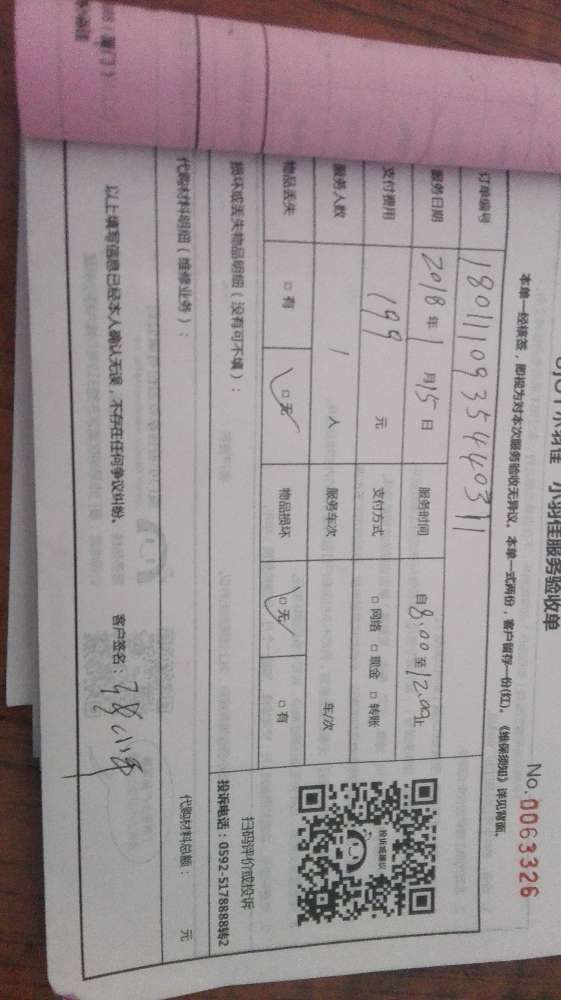 小羽佳 小羽佳服务验收单
No. 0063326
本单一经核签，即视为对本次服务验收无异议。本单一式两份，客户留存一份(红)。《维保须知》详见背面。
订单编号 18011109354440311
服务日期 2018 年 1 月 15 日 服务时间 自 8:00 至 12:00 止
支付费用 199 元 支付方式 □ 网络 □ 现金 □ 转账
服务人数 1 人 服务车次 车/次
物品丢失 □ 有 □ 无 物品损坏 □ 无 □ 有
损坏或丢失物品明细（没有可不填）：
投诉或建议
扫码评价或投诉
投诉电话：0592-5178888转2
代购材料明细（维修业务）： 代购材料总额： 元
以上填写信息已经本人确认无误，不存在任何争议纠纷。 客户签名：